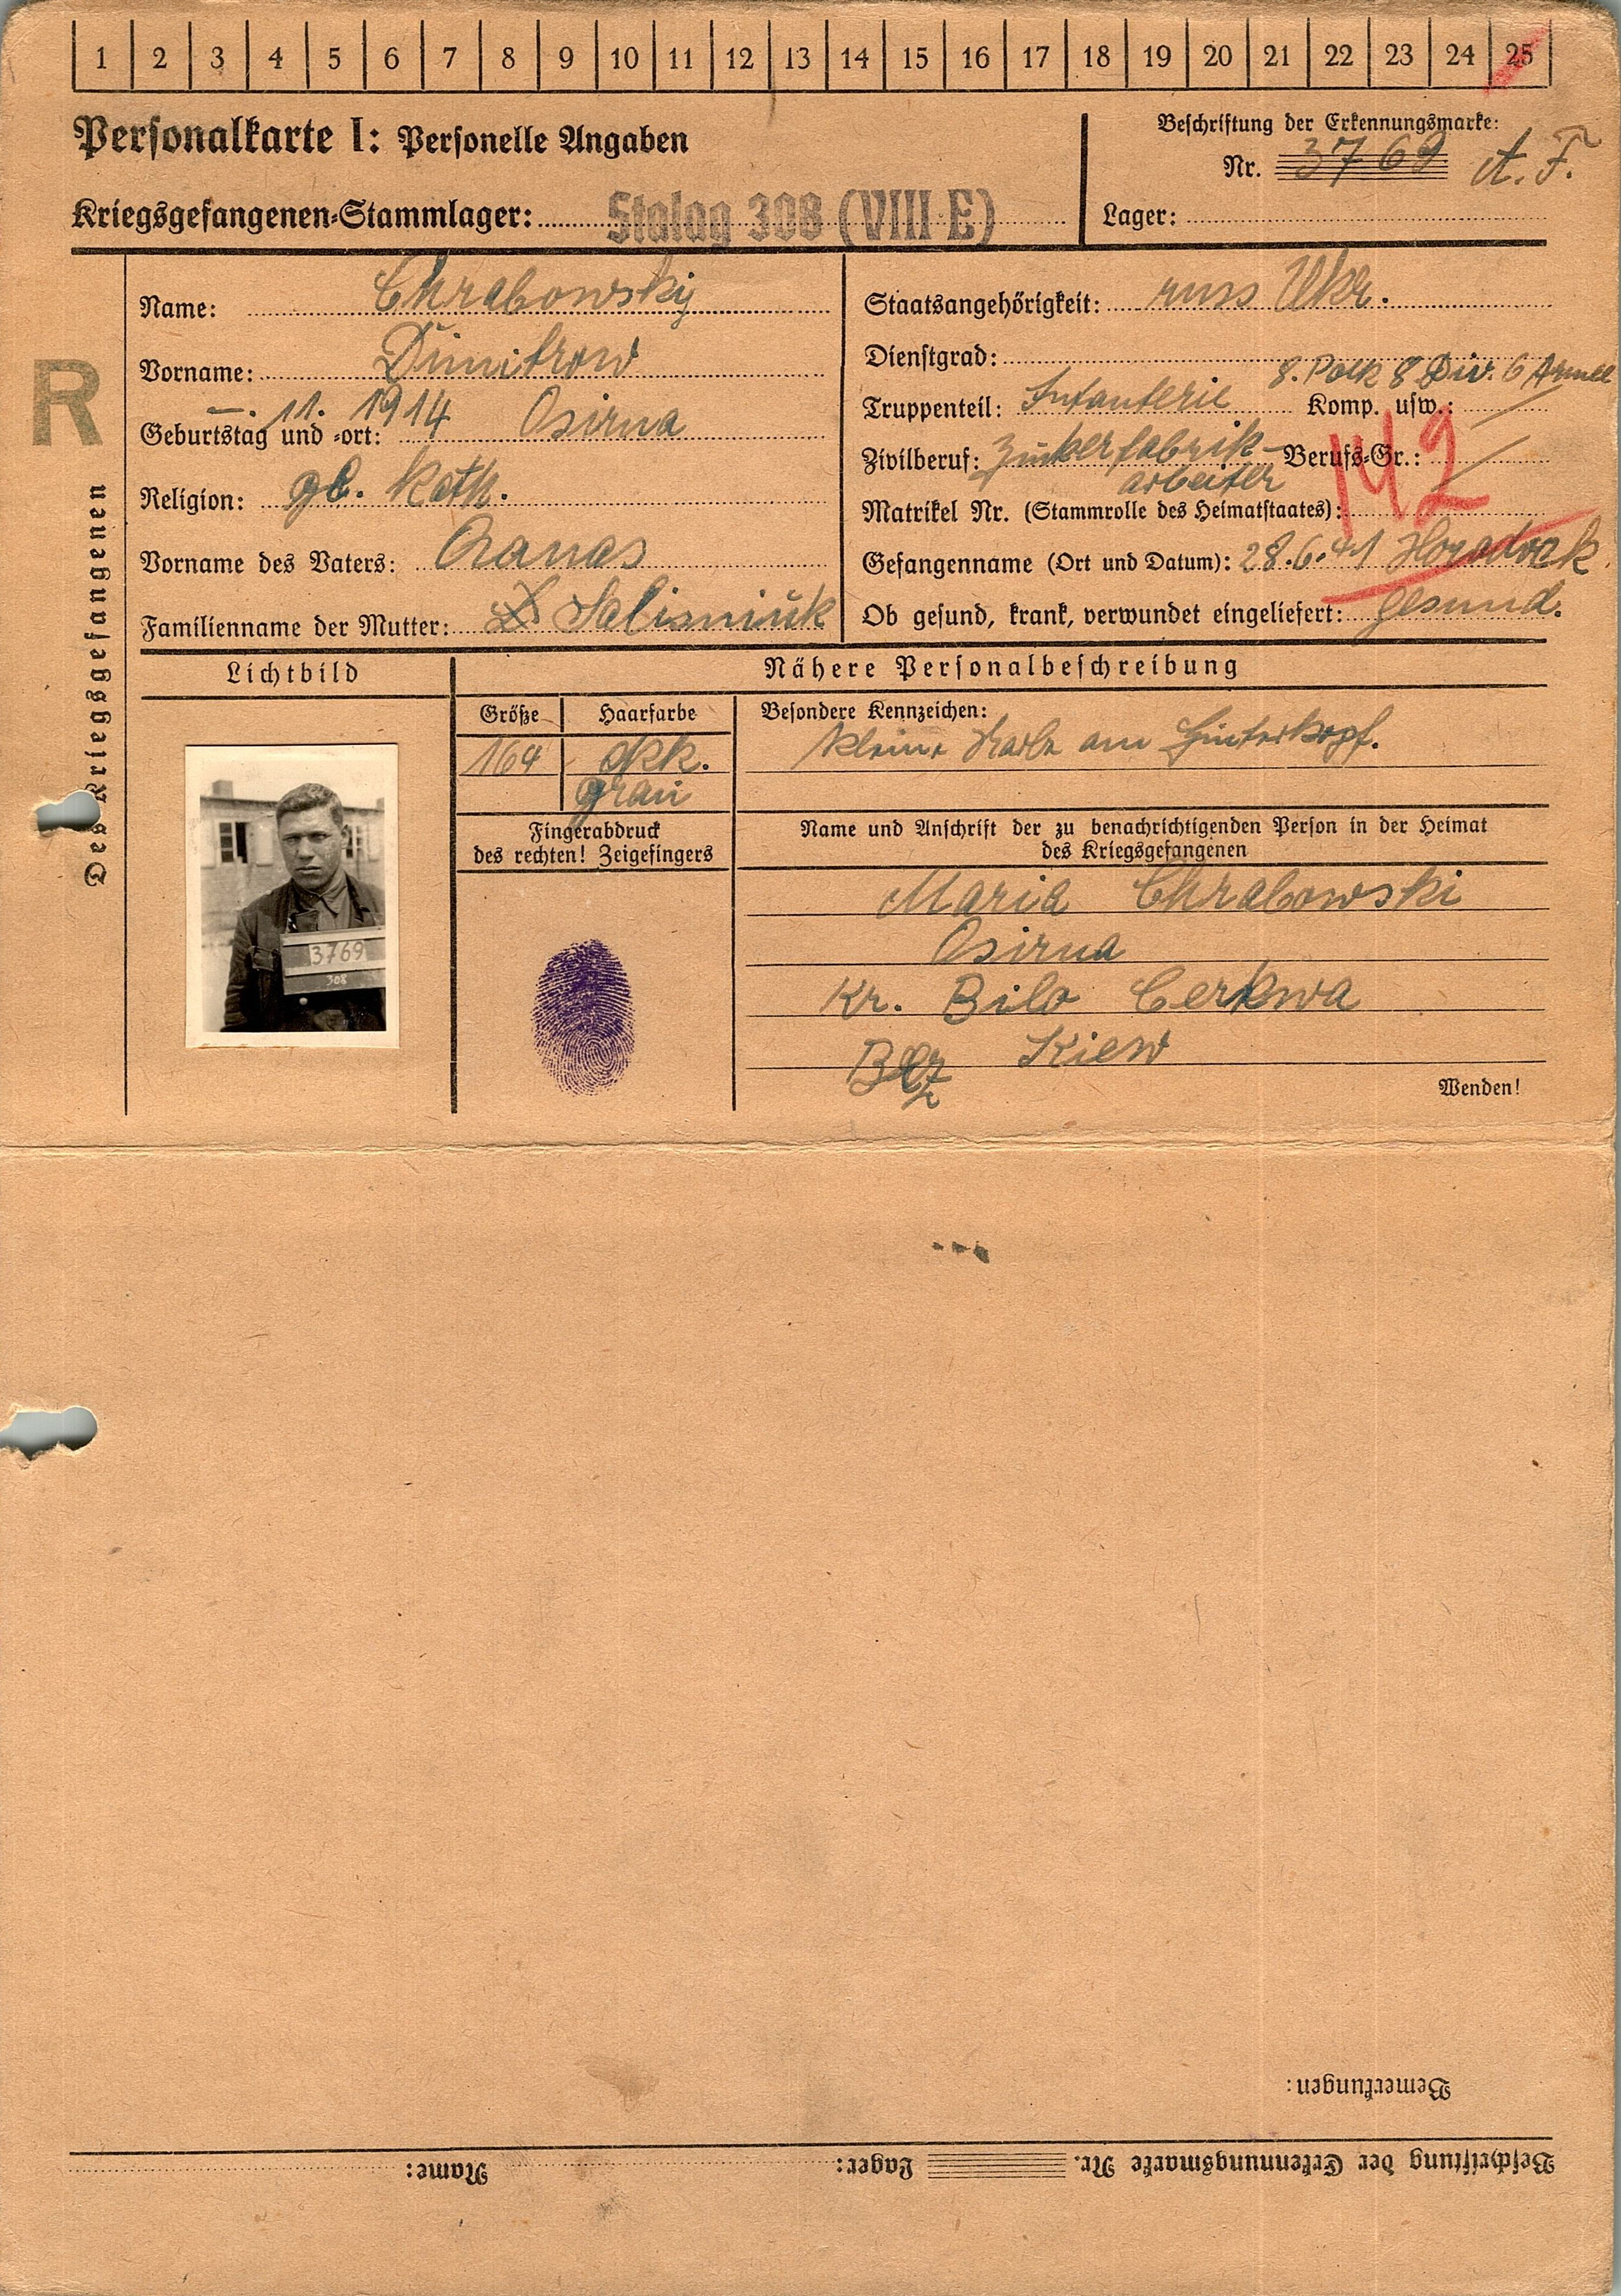 1 2 3 4 5 6 7 8 9 10 11 12 13 14 15 16 17 18 19 20 21 22 23 24 25
Personalkarte I: Personelle Angaben
Beschriftung der Erkennungsmarke:
Nr. 3769 A. F.
Kriegsgefangenen-Stammlager: Stalag 308 (VIII E)
Lager:
R
Des Kriegsgefangenen
Name: Chrabowskij
Vorname: Dimitrow
Geburtstag und -ort: —. 11. 1914 Osirna
Religion: gr. Kath.
Vorname des Vaters:
Familienname der Mutter: Salisniuk
Staatsangehörigkeit: russ Ukr.
Dienstgrad:
8. Polk 8 Div. 6 Armee
Truppenteil: Infanterie Komp. usw.:
Zivilberuf: Zukerfabrik- Berufs-Gr.:
arbeiter
142
Matrikel Nr. (Stammrolle des Heimatstaates):
Gefangenname (Ort und Datum): 28.6.41 Horodock
Ob gesund, krank, verwundet eingeliefert: gesund.
Lichtbild
Nähere Personalbeschreibung
Größe Haarfarbe
164
grau
Besondere Kennzeichen:
kleine Narbe am Hinterkopf.
Fingerabdruck
des rechten! Zeigefingers
Name und Anschrift der zu benachrichtigenden Person in der Heimat
des Kriegsgefangenen
Maria Chrabowski
Osirna
Kr. Bilo Cerkwa
Bez Kiew
3769
308
Wenden!
Bemerkungen:
Beschriftung der Erkennungsmarke Nr. Lager: Name: